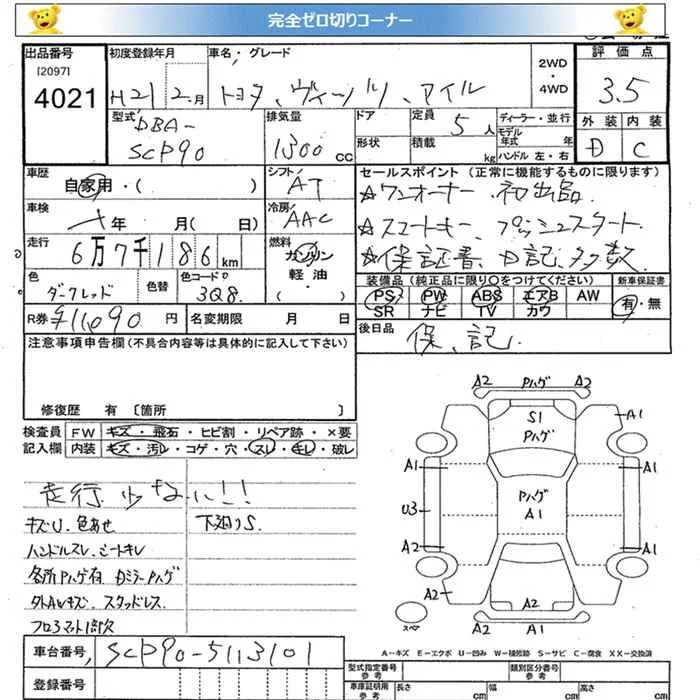 完全ゼロ切りコーナー
出品番号 初度登録年月 車名・グレード 2WD・4WD 評価点
[2097]
4021 H21 2月 トヨタ、ヴィッツ、アイル 3.5
型式 DBA- 排気量 ドア 定員 5人 ディーラー・並行 外装 内装
SCP90 1300cc 形状 積載 kg モデル年式 年 D C
ハンドル 左・右
車歴 シフト セールスポイント(正常に機能するものに限ります)
自家用・( ) AT ☆ワンオーナー 初出品
車検 冷房
年 月( 日) AAC ☆スマートキー プッシュスタート
走行 6万7千186km 燃料 ガソリン ☆保証書、D記多数
軽油・( )
色 色替 色コードD 装備品(純正品に限り○をつけてください) 新車保証書
ダークレッド 3Q8 PS PW ABS エアB AW 有・無
SR ナビ TV カワ
R券 ¥11,090円 名変期限 月 日 後日品 保、記
注意事項申告欄(不具合内容等は具体的に記入して下さい)
修復歴 有 [箇所 ]
検査員 FW キズ・飛石・ヒビ割・リペア跡・×要
記入欄 内装 キズ・汚レ・コゲ・穴・スレ・キレ・破レ
走行少ない!!
キズU.色あせ 下廻りS.
ハンドルスレ.シートキレ
各所Pハゲ有 DミラーPハゲ
外AWキズ.スタッドレス
フロアマット1部欠
A2 Pハゲ A2
S1 Pハゲ A1
A1 A1
U3 Pハゲ A1
A2 A1
A2 A2
A2 A1
スペア
A-キズ E-エクボ U-凹み W-補修跡 S-サビ C-腐食 XX-交換済
車台番号 SCP90-5113101
登録番号
型式指定番号 参考 類別区分番号 参考
車庫証明用 参考 長さ cm 幅 cm 高さ cm